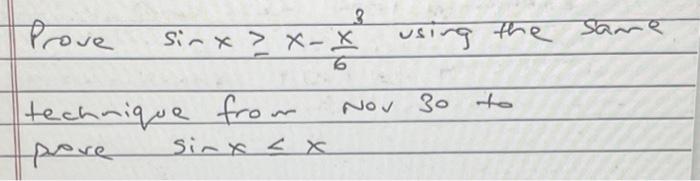 Prove sin x ≥ x - x³/6 using the same
technique from Nov 30 to
prove sin x ≤ x